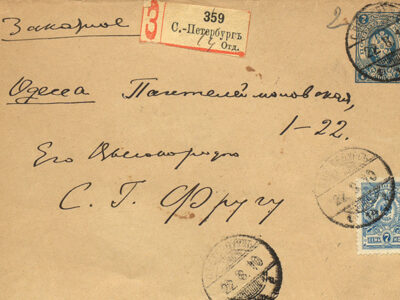 Заказное
2.
З
359
С.-Петербургъ
14 Отд.
Одесса Пантелеймоновская,
1-22.
Его Высокородію
С. Г. Фругу
22.8.10
7
22.8.10